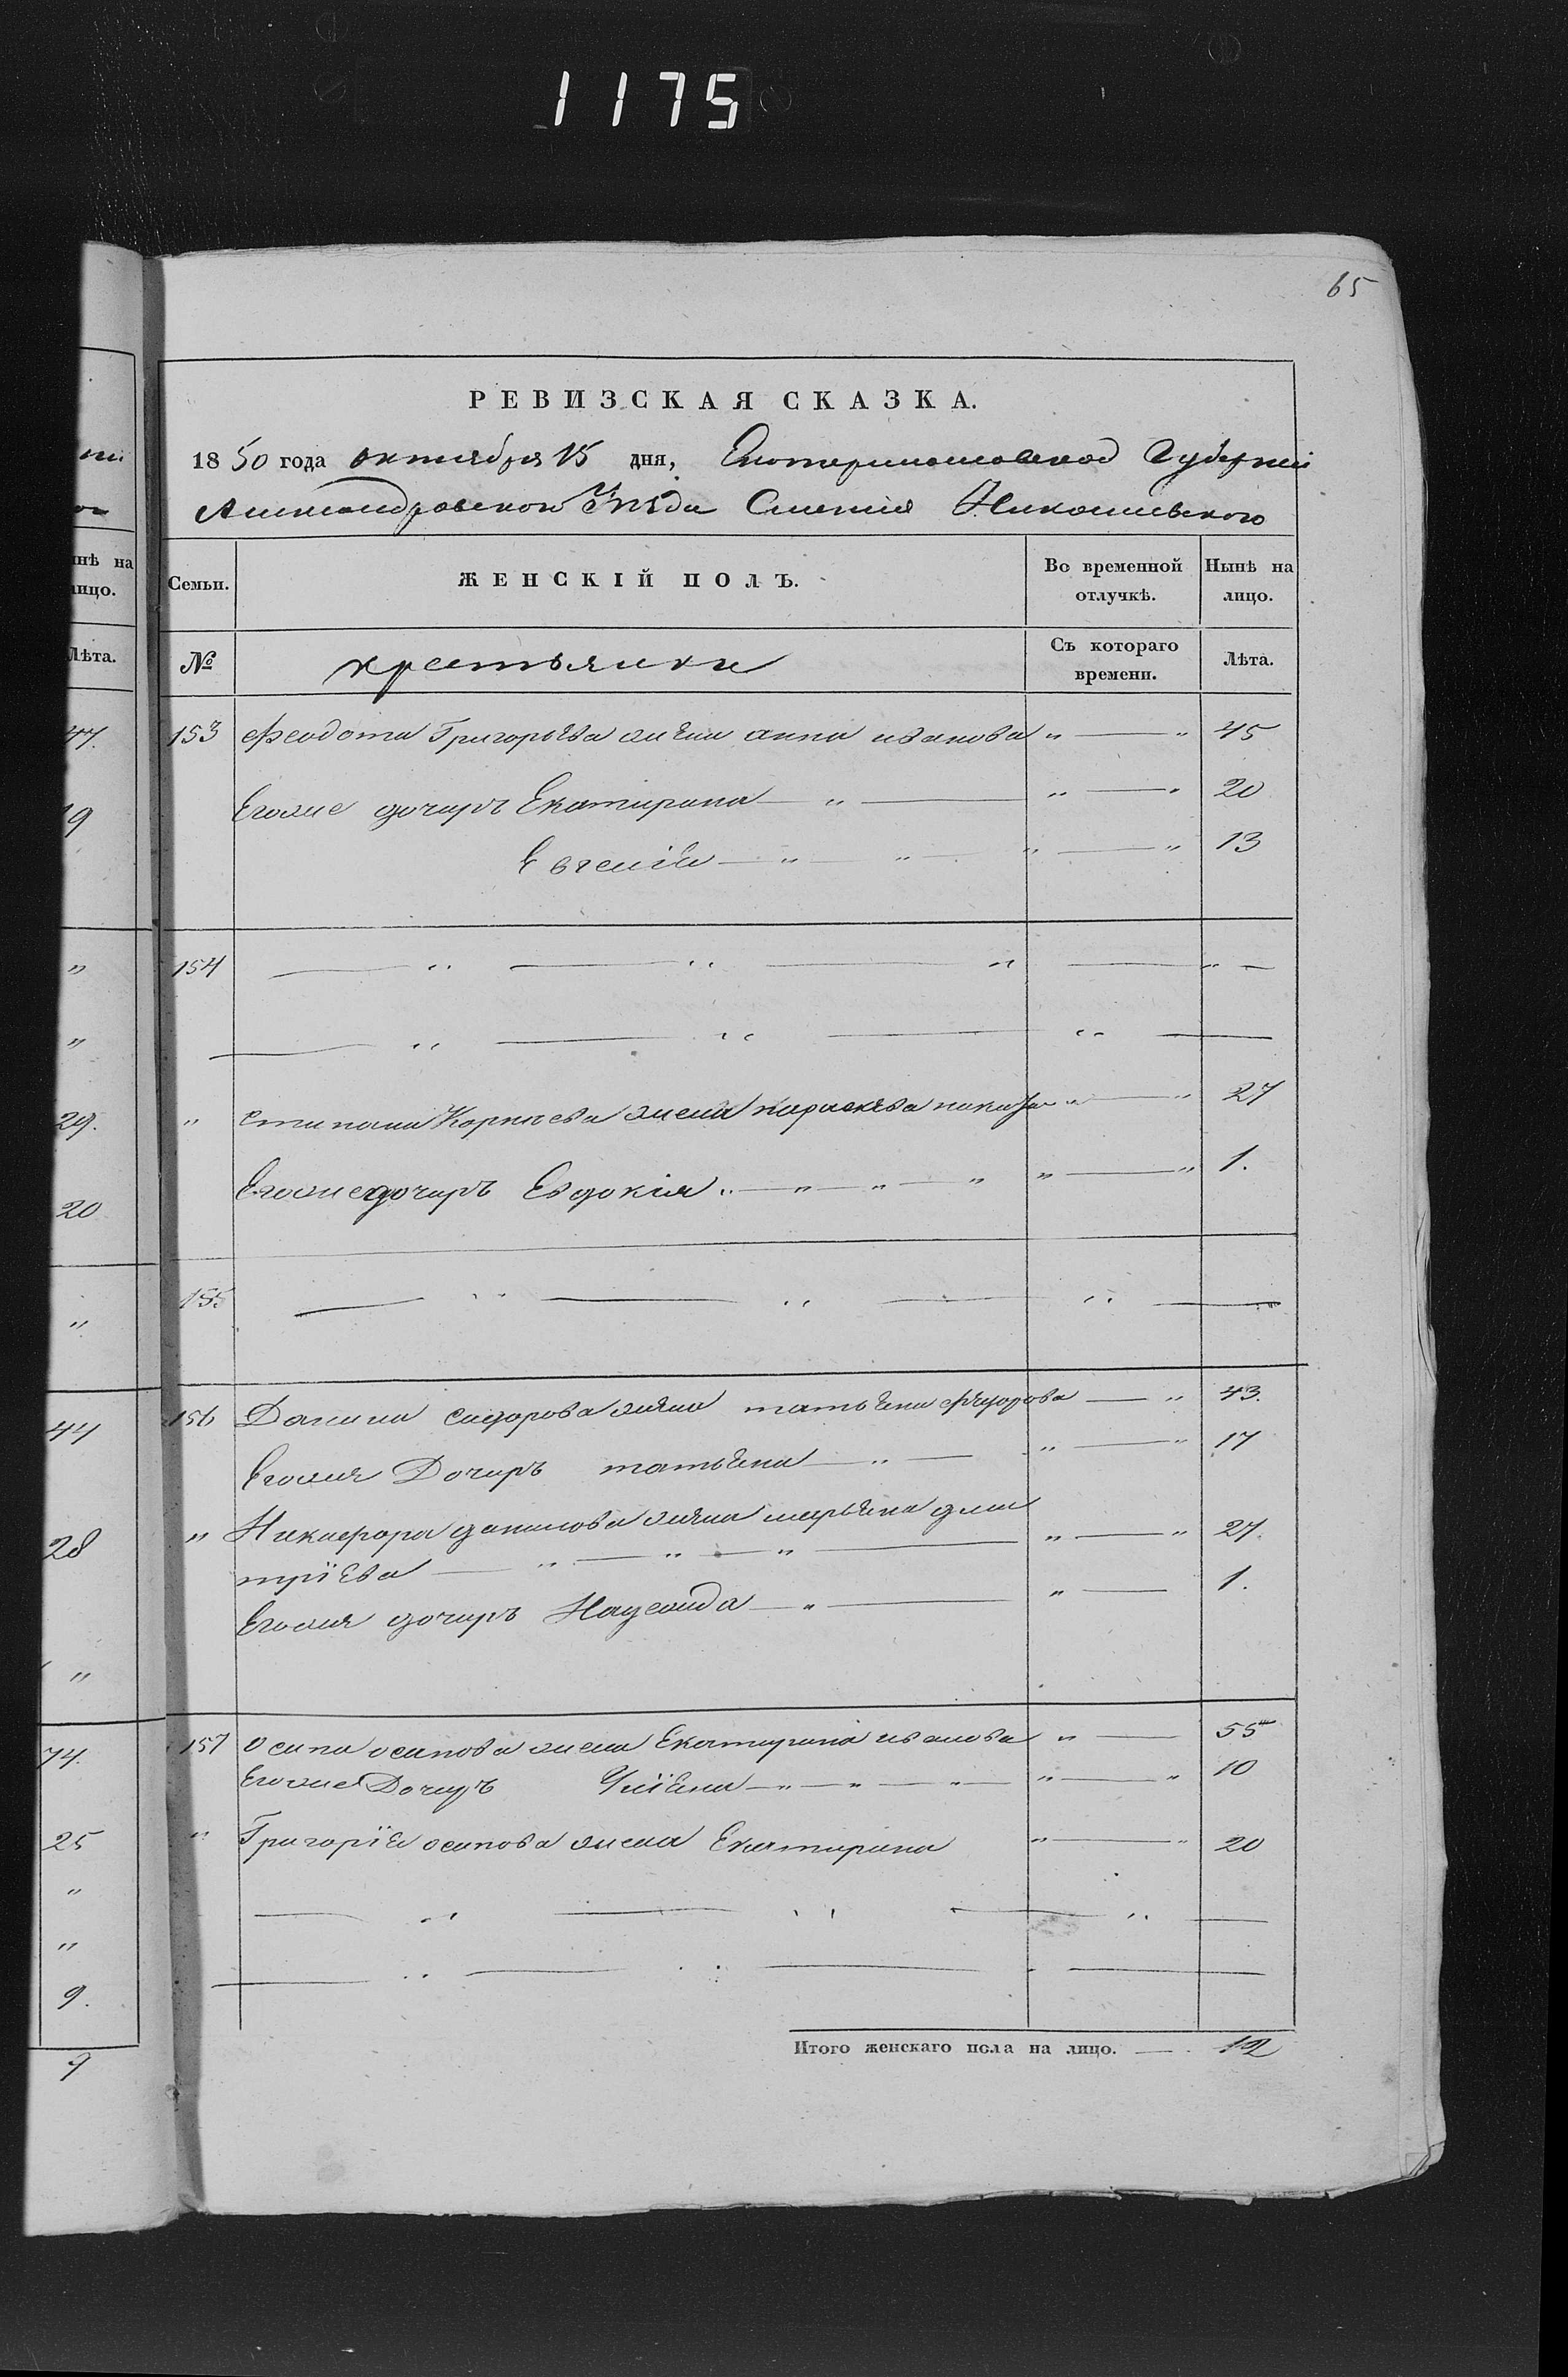 1175
65
РЕВИЗСКАЯ СКАЗКА.
1850 года октября 15 дня, Екатеринославской Губерніи
Александровскои Уѣзда Силенія Николаивского
Семьи. ЖЕНСКІЙ ПОЛЪ. Во временной отлучкѣ. Нынѣ на лицо.
№ крестьянки Съ котораго времени. Лѣта.
153 Феодота Григорьева жена анна иванова " — " 45
Егоже дочиръ Екатирина — " — " — " 20
Евгенія — " — " — " — " 13
154 — " — " — " — " —
— " — " — " —
" Стипана Корниева жена параскева " — " 27
Егоже дочиръ Евдокия " — " — " — " " — " 1.
155 — " — " — " —
156 Данила сидорова жена татьяна фѣдорова — " 43.
Егожя Дочиръ татьяна — " — " — " 17
" Никифора данилова жена марьяна дми
тріева — " — " — " — " — " 27.
Егожя дочиръ Надежда — " — " — 1.
157 осипа осипова жена Екатирина иванова " — 55
Егоже Дочиръ — " — " — " — " — " 10
" Григорія осипова жена Екатирина " — " 20
— " — " — " —
— " — " — —
Итого женскаго пола на лицо. — 12
нѣ на
лицо.
Лѣта.
47.
19
"
"
29.
20
"
44
28
"
74.
25
"
"
9.
9